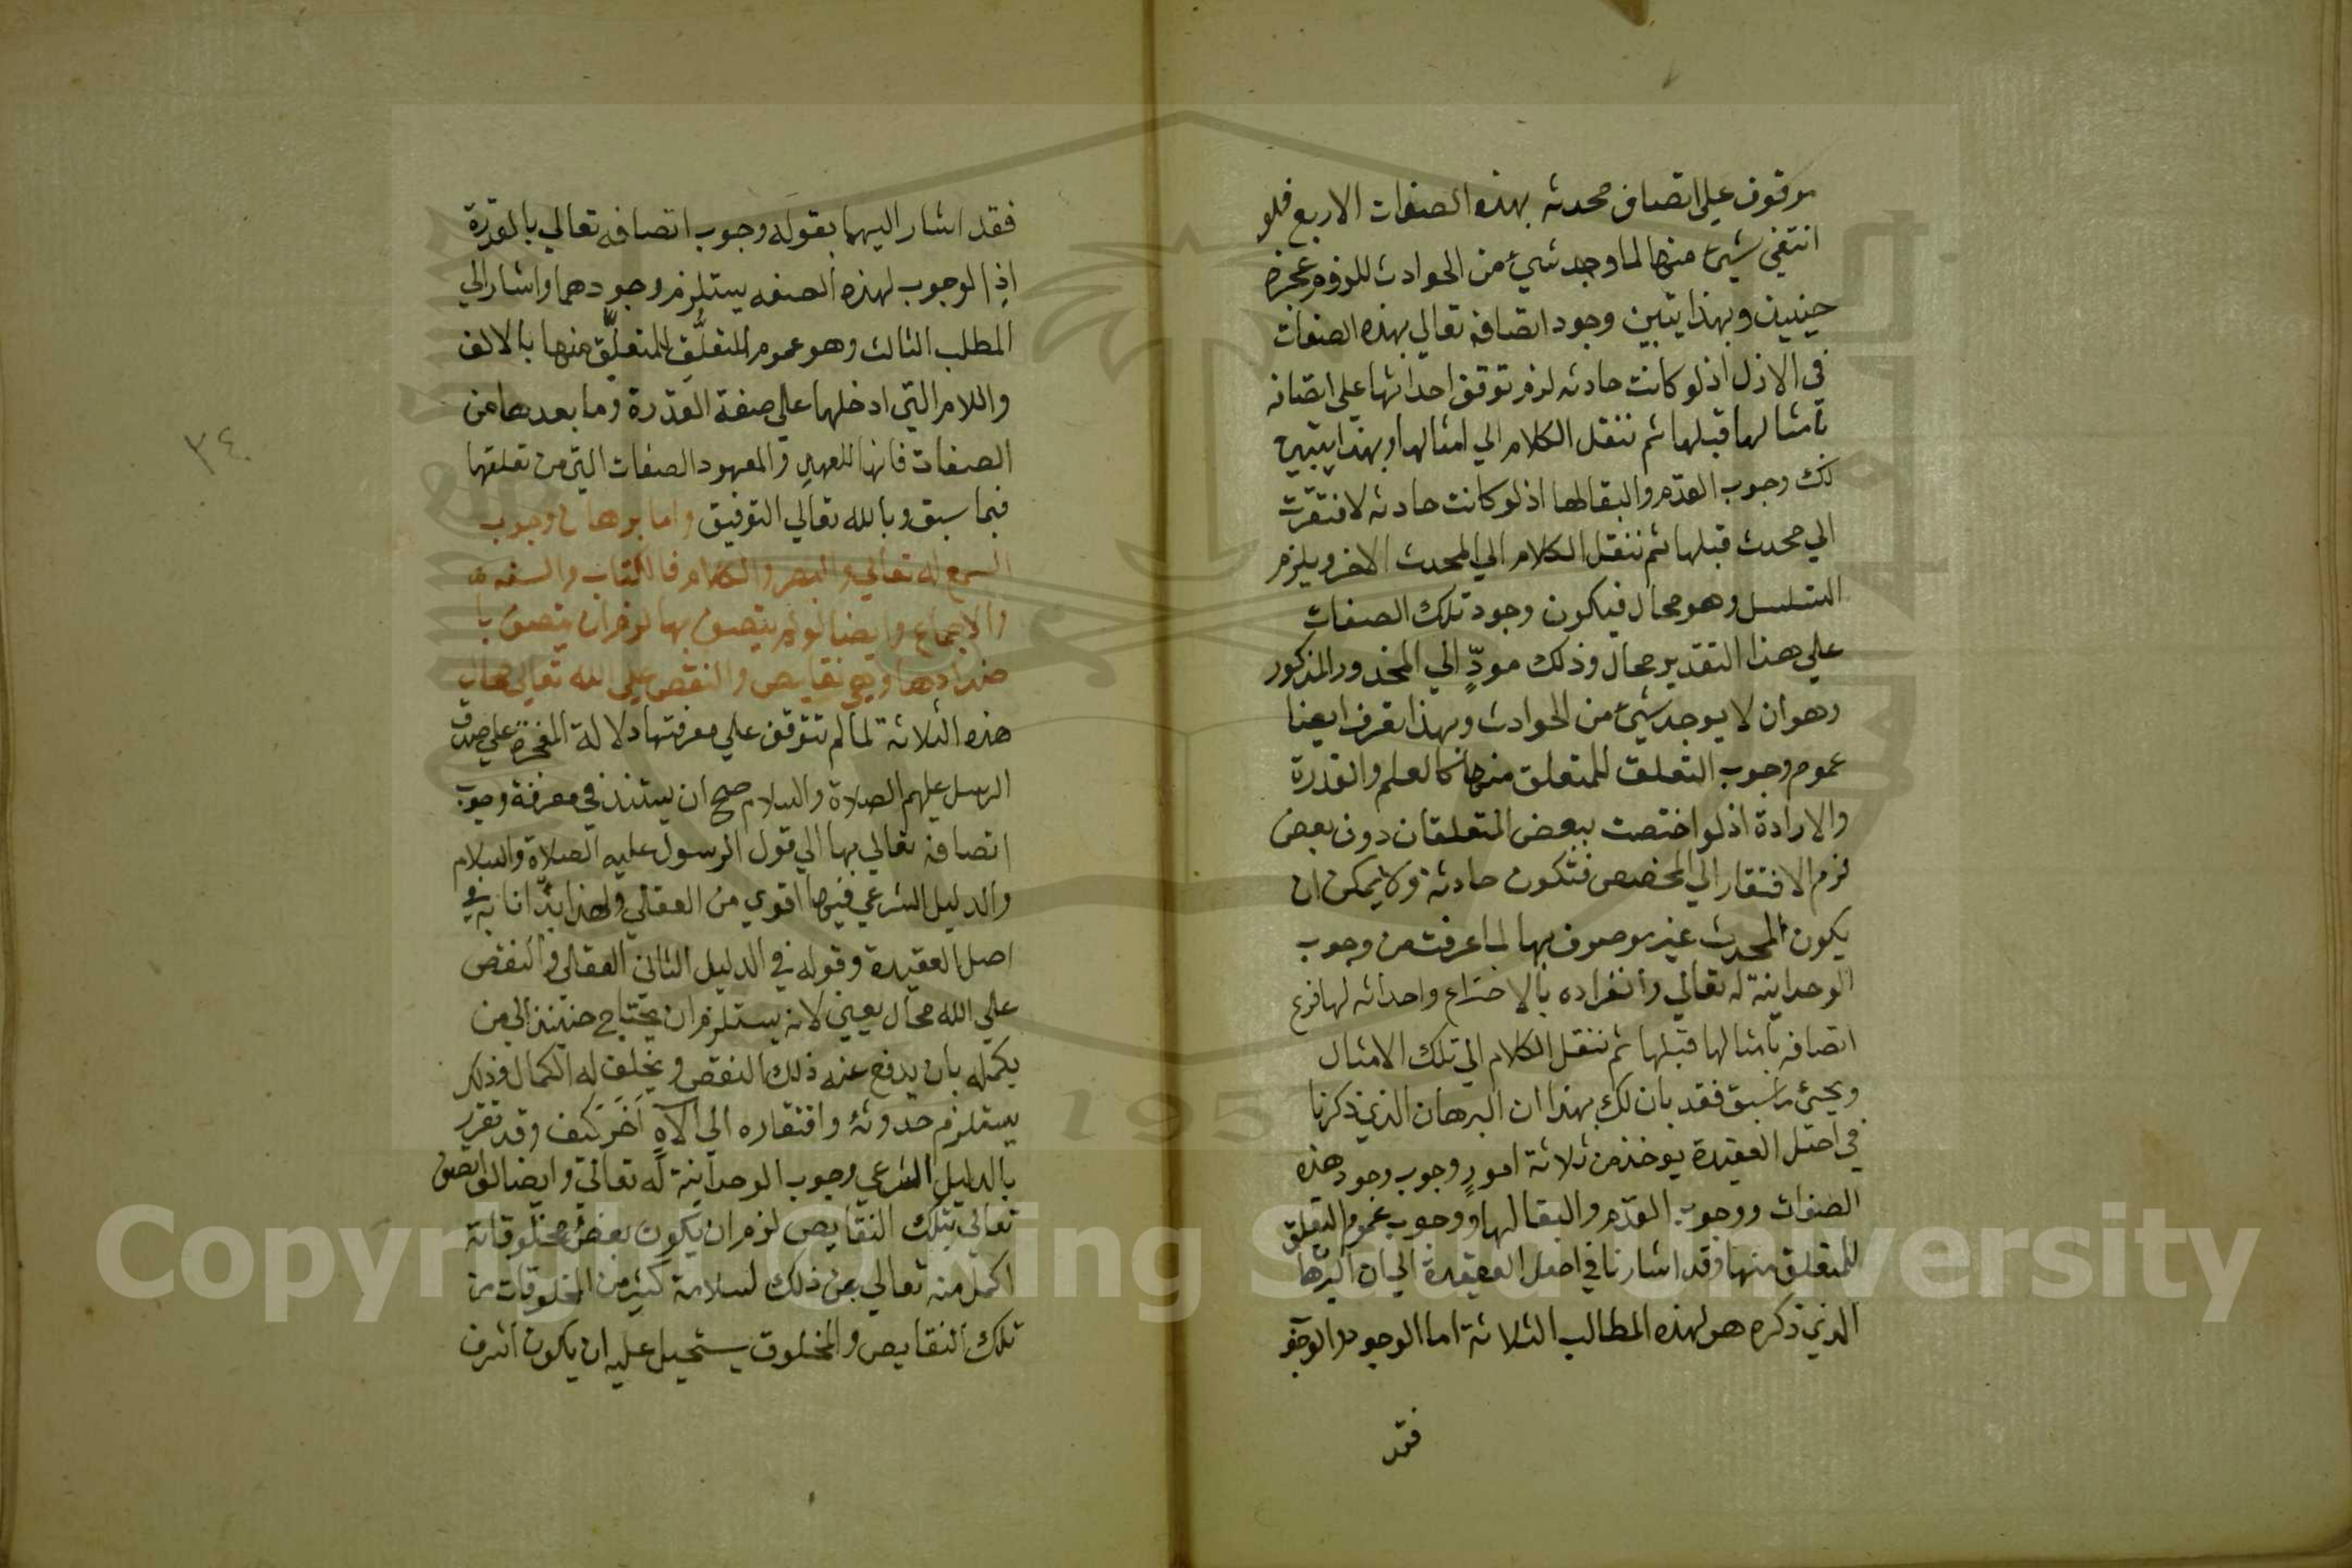 موقوف علي اتصاف محدثه بهذه الصفات الاربع فلو
انتفي شيء منها لما وجد شيء من الحوادث للزوم عجزه
حينيذ وبهذا يتبين وجود اتصافه تعالي بهذه الصفات
في الازل اذ لو كانت حادثه لزم توقف احداثها علي اتصافه
بامثالها قبلها ثم ننقل الكلام الي امثالها وبهذا يتبين
لك وجوب القدم والبقا لها اذ لو كانت حادثه لافتقرت
الي محدث قبلها ثم ننقل الكلام الي المحدث الاخر ويلزم
التسلسل وهو محال فيكون وجود تلك الصفات
علي هذا التقدير محال وذلك مودٍّ الي المحذور المذكور
وهو ان لا يوجد شيء من الحوادث وبهذا يعرف ايضا
عموم وجوب التعلق للمتعلق منها كالعلم والقدرة
والارادة اذ لو اختصت ببعض المتعلقات دون بعض
لزم الافتقار الي المخصص فتكون حادثة ولا يمكن ان
يكون المحدث غير موصوف بها لما عرفت من وجوب
الوحدانية له تعالي وانفراده بالاختراع واحداثه لها فرع
اتصافه بامثالها قبلها ثم ننقل الكلام الي تلك الامثال
ويجئ ما سبق فقد بان لك بهذا ان البرهان الذي ذكرنا
في اصل العقيدة يوخذ من ثلاثة امورٍ وجوب وجود هذه
الصفات ووجوب القدم والبقا لها ووجوب عموم التعلق
للمتعلق منها وقد اشارنا في اصل العقيدة الي ان البرهان
الذي ذكره هو لهذه المطالب الثلاثة اما الوجود
فقد
فقد اشار اليهما بقوله وجوب اتصافه تعالي بالقدرة
اذ الوجوب لهذه الصفه يستلزم وجودهما واشار الي
المطلب الثالث وهو عموم التعلُّق للمتعلِّق منها بالالف
واللام التي ادخلها علي صفة القدرة وما بعدها من
الصفات فانها للعهدِ والمعهود الصفات التي من تعلقها
فيما سبق وبالله تعالي التوفيق واما برهان وجوب
السمع له تعالي والبصر والكلام فالكتاب والسنه
والاجماع وايضا لو لم يتصف بها لزم ان يتصف با
ضدادها وهي نقايص والنقص علي الله تعالي محال
هذه الثلاثة لما لم تتوقف علي معرفتها دلالة المعجزة علي صدق
الرسل عليهم الصلاة والسلام صح ان يستند في معرفة وجوب
اتصافه تعالي بها الي قول الرسول عليه الصلاة والسلام
والدليل الشرعي فيها اقوي من العقلي ولهذا بدّانا به في
اصل العقيدة وقوله في الدليل الثاني العقلي والنقص
علي الله محال يعني لانه يستلزم ان يحتاج حينئذ الي من
يكمله بان يدفع عنه ذلك النقص ويخلق له الكمال وذلك
يستلزم حدوثهُ وافتقاره الي الاهٍ آخَرَ كيف وقد تقرر
بالدليل الشرعي وجوب الوحدانية له تعالي وايضا لو اتصف
تعالي بتلك النقايص لزم ان يكون بعض مخلوقاته
اكمل منه تعالي عن ذلك لسلامة كثير من المخلوقات من
تلك النقايص والمخلوق يستحيل عليه ان يكون اشرف
٣٤
Copyright © King Saud University
195